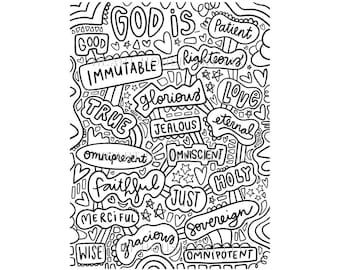 GOD is
GOOD
Patient
IMMUTABLE
righteous
glorious
LOVE
TRUE
JEALOUS
eternal
omnipresent
OMNISCIENT
faithful
HOLY
JUST
MERCIFUL
sovereign
WISE
gracious
OMNIPOTENT